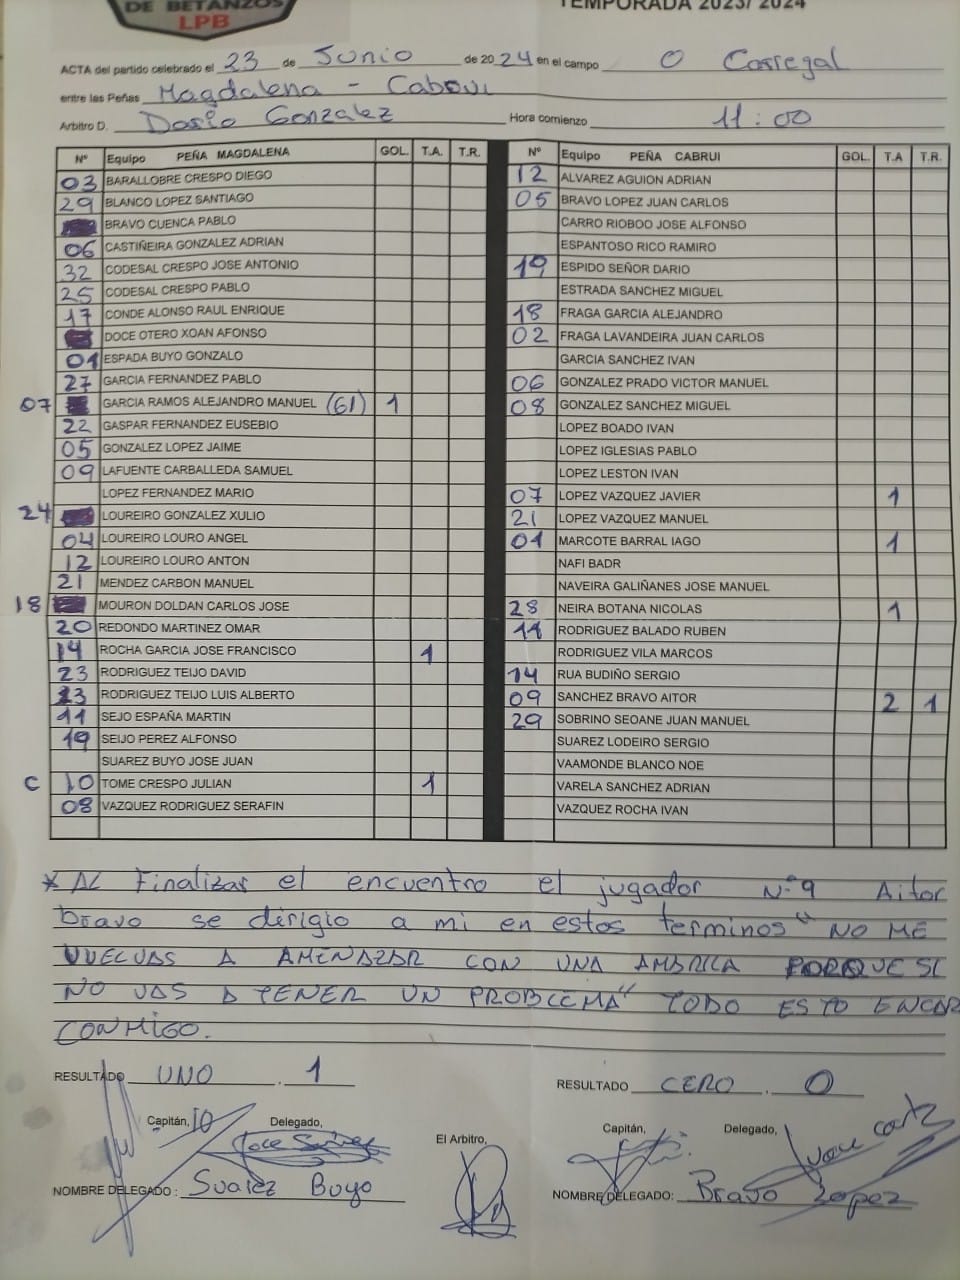 DE BETANZOS
LPB
TEMPORADA 2023/ 2024
ACTA del partido celebrado el 23 de Junio de 2024 en el campo O Carregal
entre las Peñas Magdalena - Cabrui
Arbitro D. Dario Gonzalez Hora comienzo 11:00
Nº Equipo PEÑA MAGDALENA GOL. T.A. T.R. Nº Equipo PEÑA CABRUI GOL. T.A T.R.
03 BARALLOBRE CRESPO DIEGO 12 ALVAREZ AGUION ADRIAN
29 BLANCO LOPEZ SANTIAGO 05 BRAVO LOPEZ JUAN CARLOS
BRAVO CUENCA PABLO CARRO RIOBOO JOSE ALFONSO
06 CASTIÑEIRA GONZALEZ ADRIAN ESPANTOSO RICO RAMIRO
32 CODESAL CRESPO JOSE ANTONIO 19 ESPIDO SEÑOR DARIO
25 CODESAL CRESPO PABLO ESTRADA SANCHEZ MIGUEL
17 CONDE ALONSO RAUL ENRIQUE 18 FRAGA GARCIA ALEJANDRO
DOCE OTERO XOAN AFONSO 02 FRAGA LAVANDEIRA JUAN CARLOS
01 ESPADA BUYO GONZALO GARCIA SANCHEZ IVAN
27 GARCIA FERNANDEZ PABLO 06 GONZALEZ PRADO VICTOR MANUEL
07 GARCIA RAMOS ALEJANDRO MANUEL (61) 1 08 GONZALEZ SANCHEZ MIGUEL
22 GASPAR FERNANDEZ EUSEBIO LOPEZ BOADO IVAN
05 GONZALEZ LOPEZ JAIME LOPEZ IGLESIAS PABLO
09 LAFUENTE CARBALLEDA SAMUEL LOPEZ LESTON IVAN
LOPEZ FERNANDEZ MARIO 07 LOPEZ VAZQUEZ JAVIER 1
24 LOUREIRO GONZALEZ XULIO 21 LOPEZ VAZQUEZ MANUEL
04 LOUREIRO LOURO ANGEL 01 MARCOTE BARRAL IAGO 1
12 LOUREIRO LOURO ANTON NAFI BADR
21 MENDEZ CARBON MANUEL NAVEIRA GALIÑANES JOSE MANUEL
18 MOURON DOLDAN CARLOS JOSE 28 NEIRA BOTANA NICOLAS 1
20 REDONDO MARTINEZ OMAR 11 RODRIGUEZ BALADO RUBEN
14 ROCHA GARCIA JOSE FRANCISCO 1 RODRIGUEZ VILA MARCOS
23 RODRIGUEZ TEIJO DAVID 14 RUA BUDIÑO SERGIO
13 RODRIGUEZ TEIJO LUIS ALBERTO 09 SANCHEZ BRAVO AITOR 2 1
11 SEJO ESPAÑA MARTIN 29 SOBRINO SEOANE JUAN MANUEL
19 SEIJO PEREZ ALFONSO SUAREZ LODEIRO SERGIO
SUAREZ BUYO JOSE JUAN VAAMONDE BLANCO NOE
C 10 TOME CRESPO JULIAN 1 VARELA SANCHEZ ADRIAN
08 VAZQUEZ RODRIGUEZ SERAFIN VAZQUEZ ROCHA IVAN
* AL Finalizar el encuentro el jugador Nº9 Aitor
bravo se dirigio a mi en estos terminos "NO ME
VUELVAS A AMENAZAR CON UNA AMARILA PORQUE SI
NO VAS A TENER UN PROBLEMA" TODO ESTO ENCAR
CONMIGO.
RESULTADO UNO . 1 RESULTADO CERO . 0
Capitán, 10 Delegado, El Arbitro, Capitán, Delegado,
NOMBRE DELEGADO : Suarez Buyo NOMBRE DELEGADO: Bravo Lopez